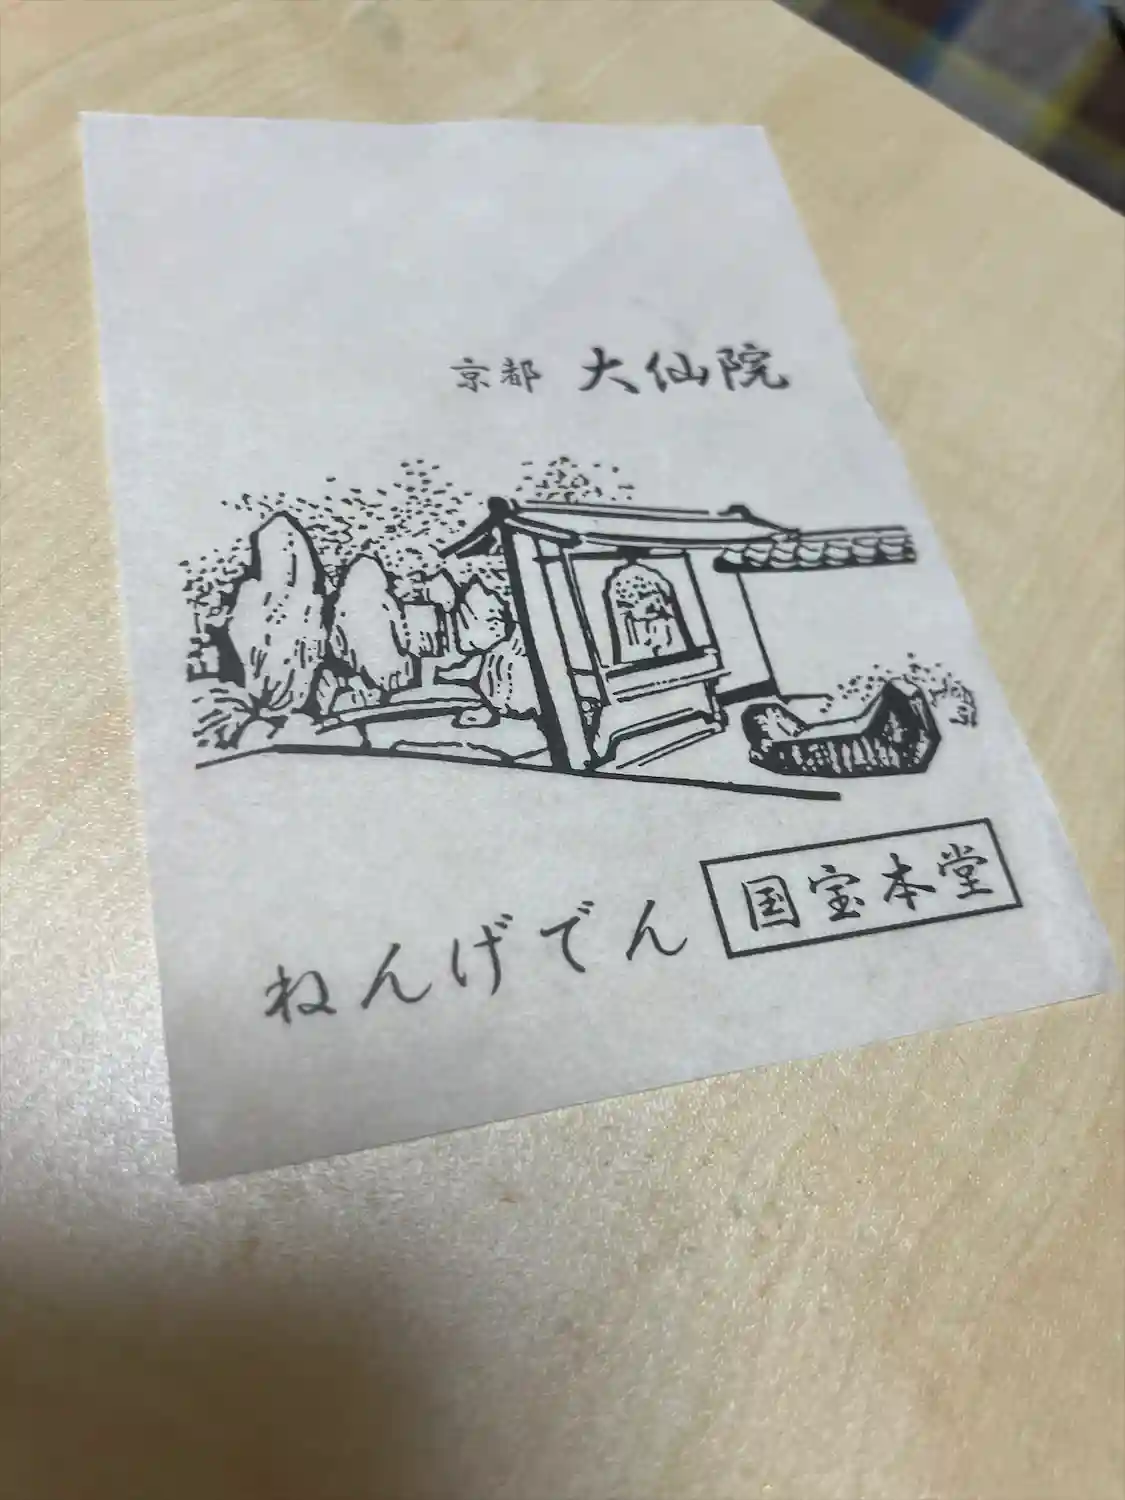 京都 大仙院
国宝本堂
ねんげでん